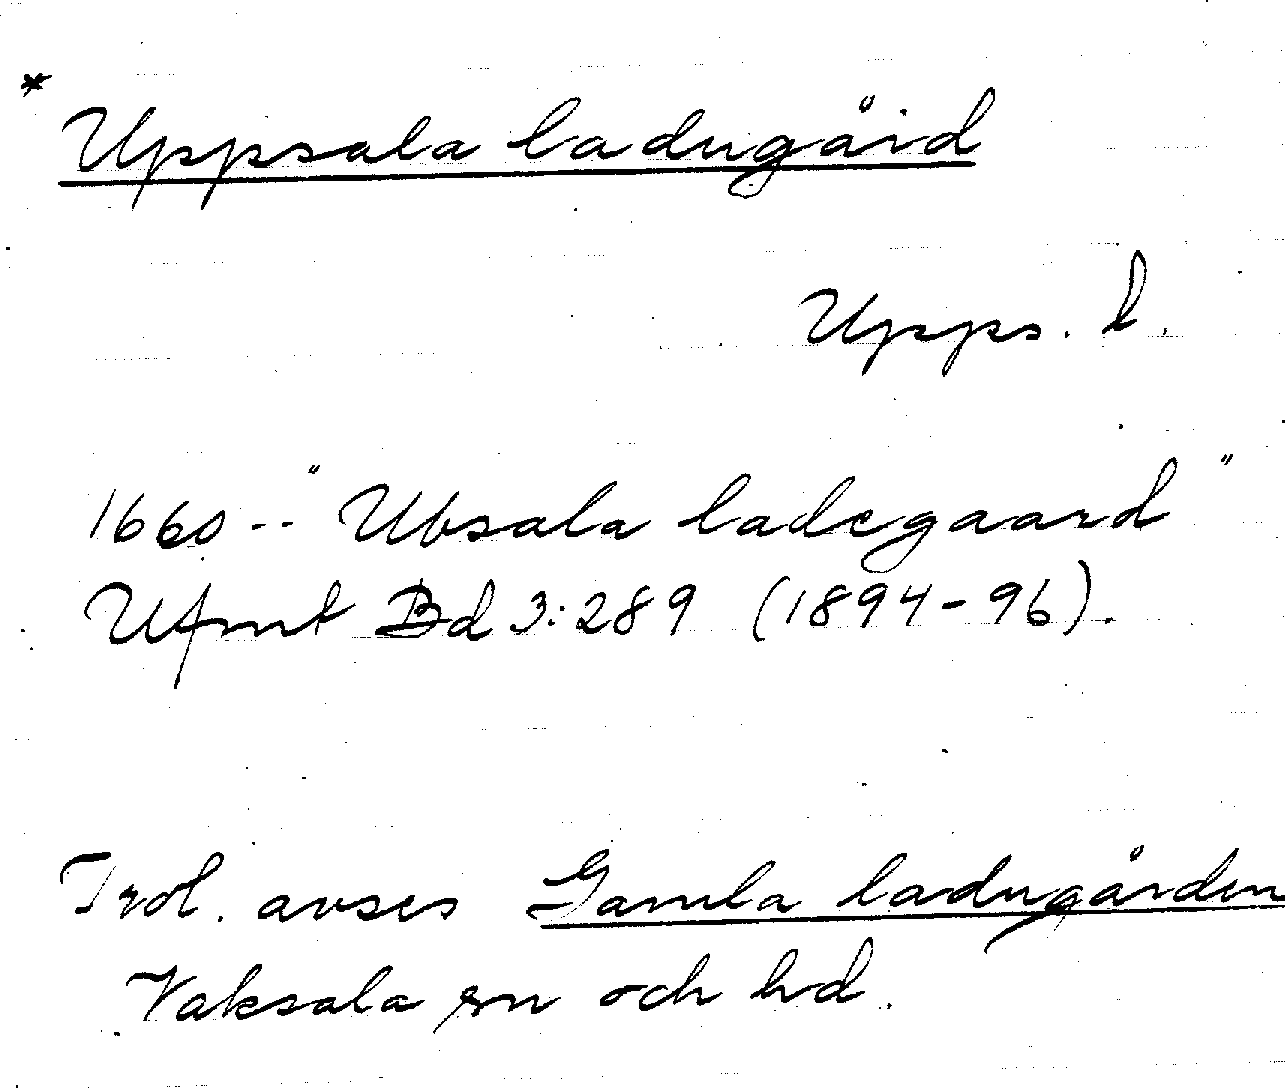 * Uppsala ladugård
Upps. l.
1660 -- "Ubsala ladegaard"
Ufmt Bd 3:289 (1894-96).
Trol. avses Gamla ladugården
Vaksala sn och hd.